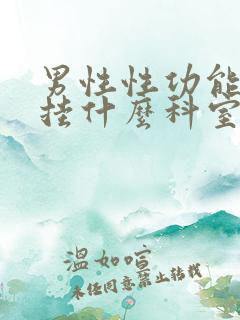 男性性功能
挂什麼科室
溫如喧
未任同意禁止转载